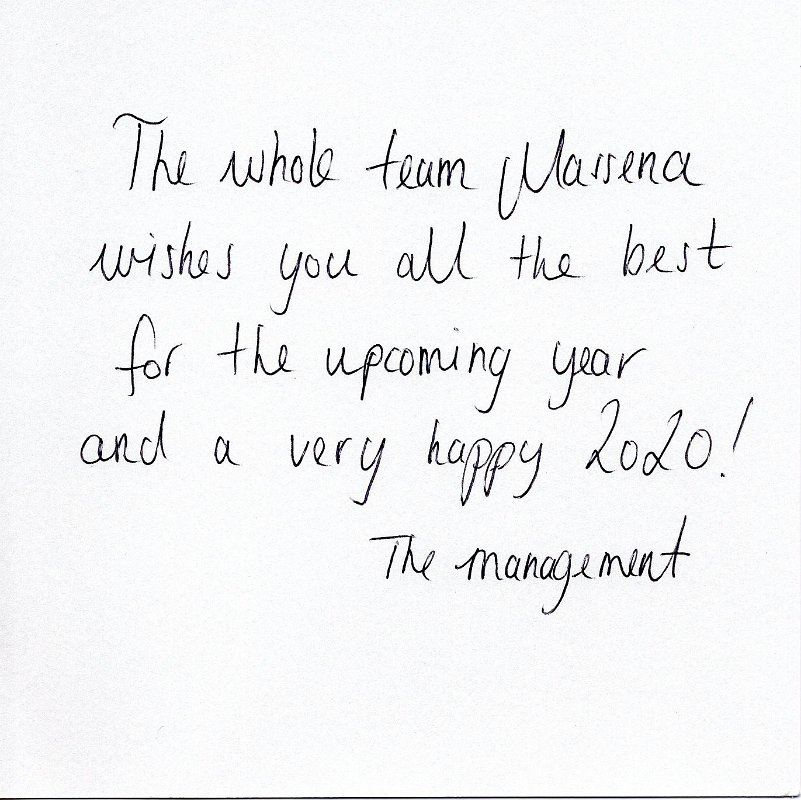 The whole team Massena
wishes you all the best
for the upcoming year
and a very happy 2020!
The management